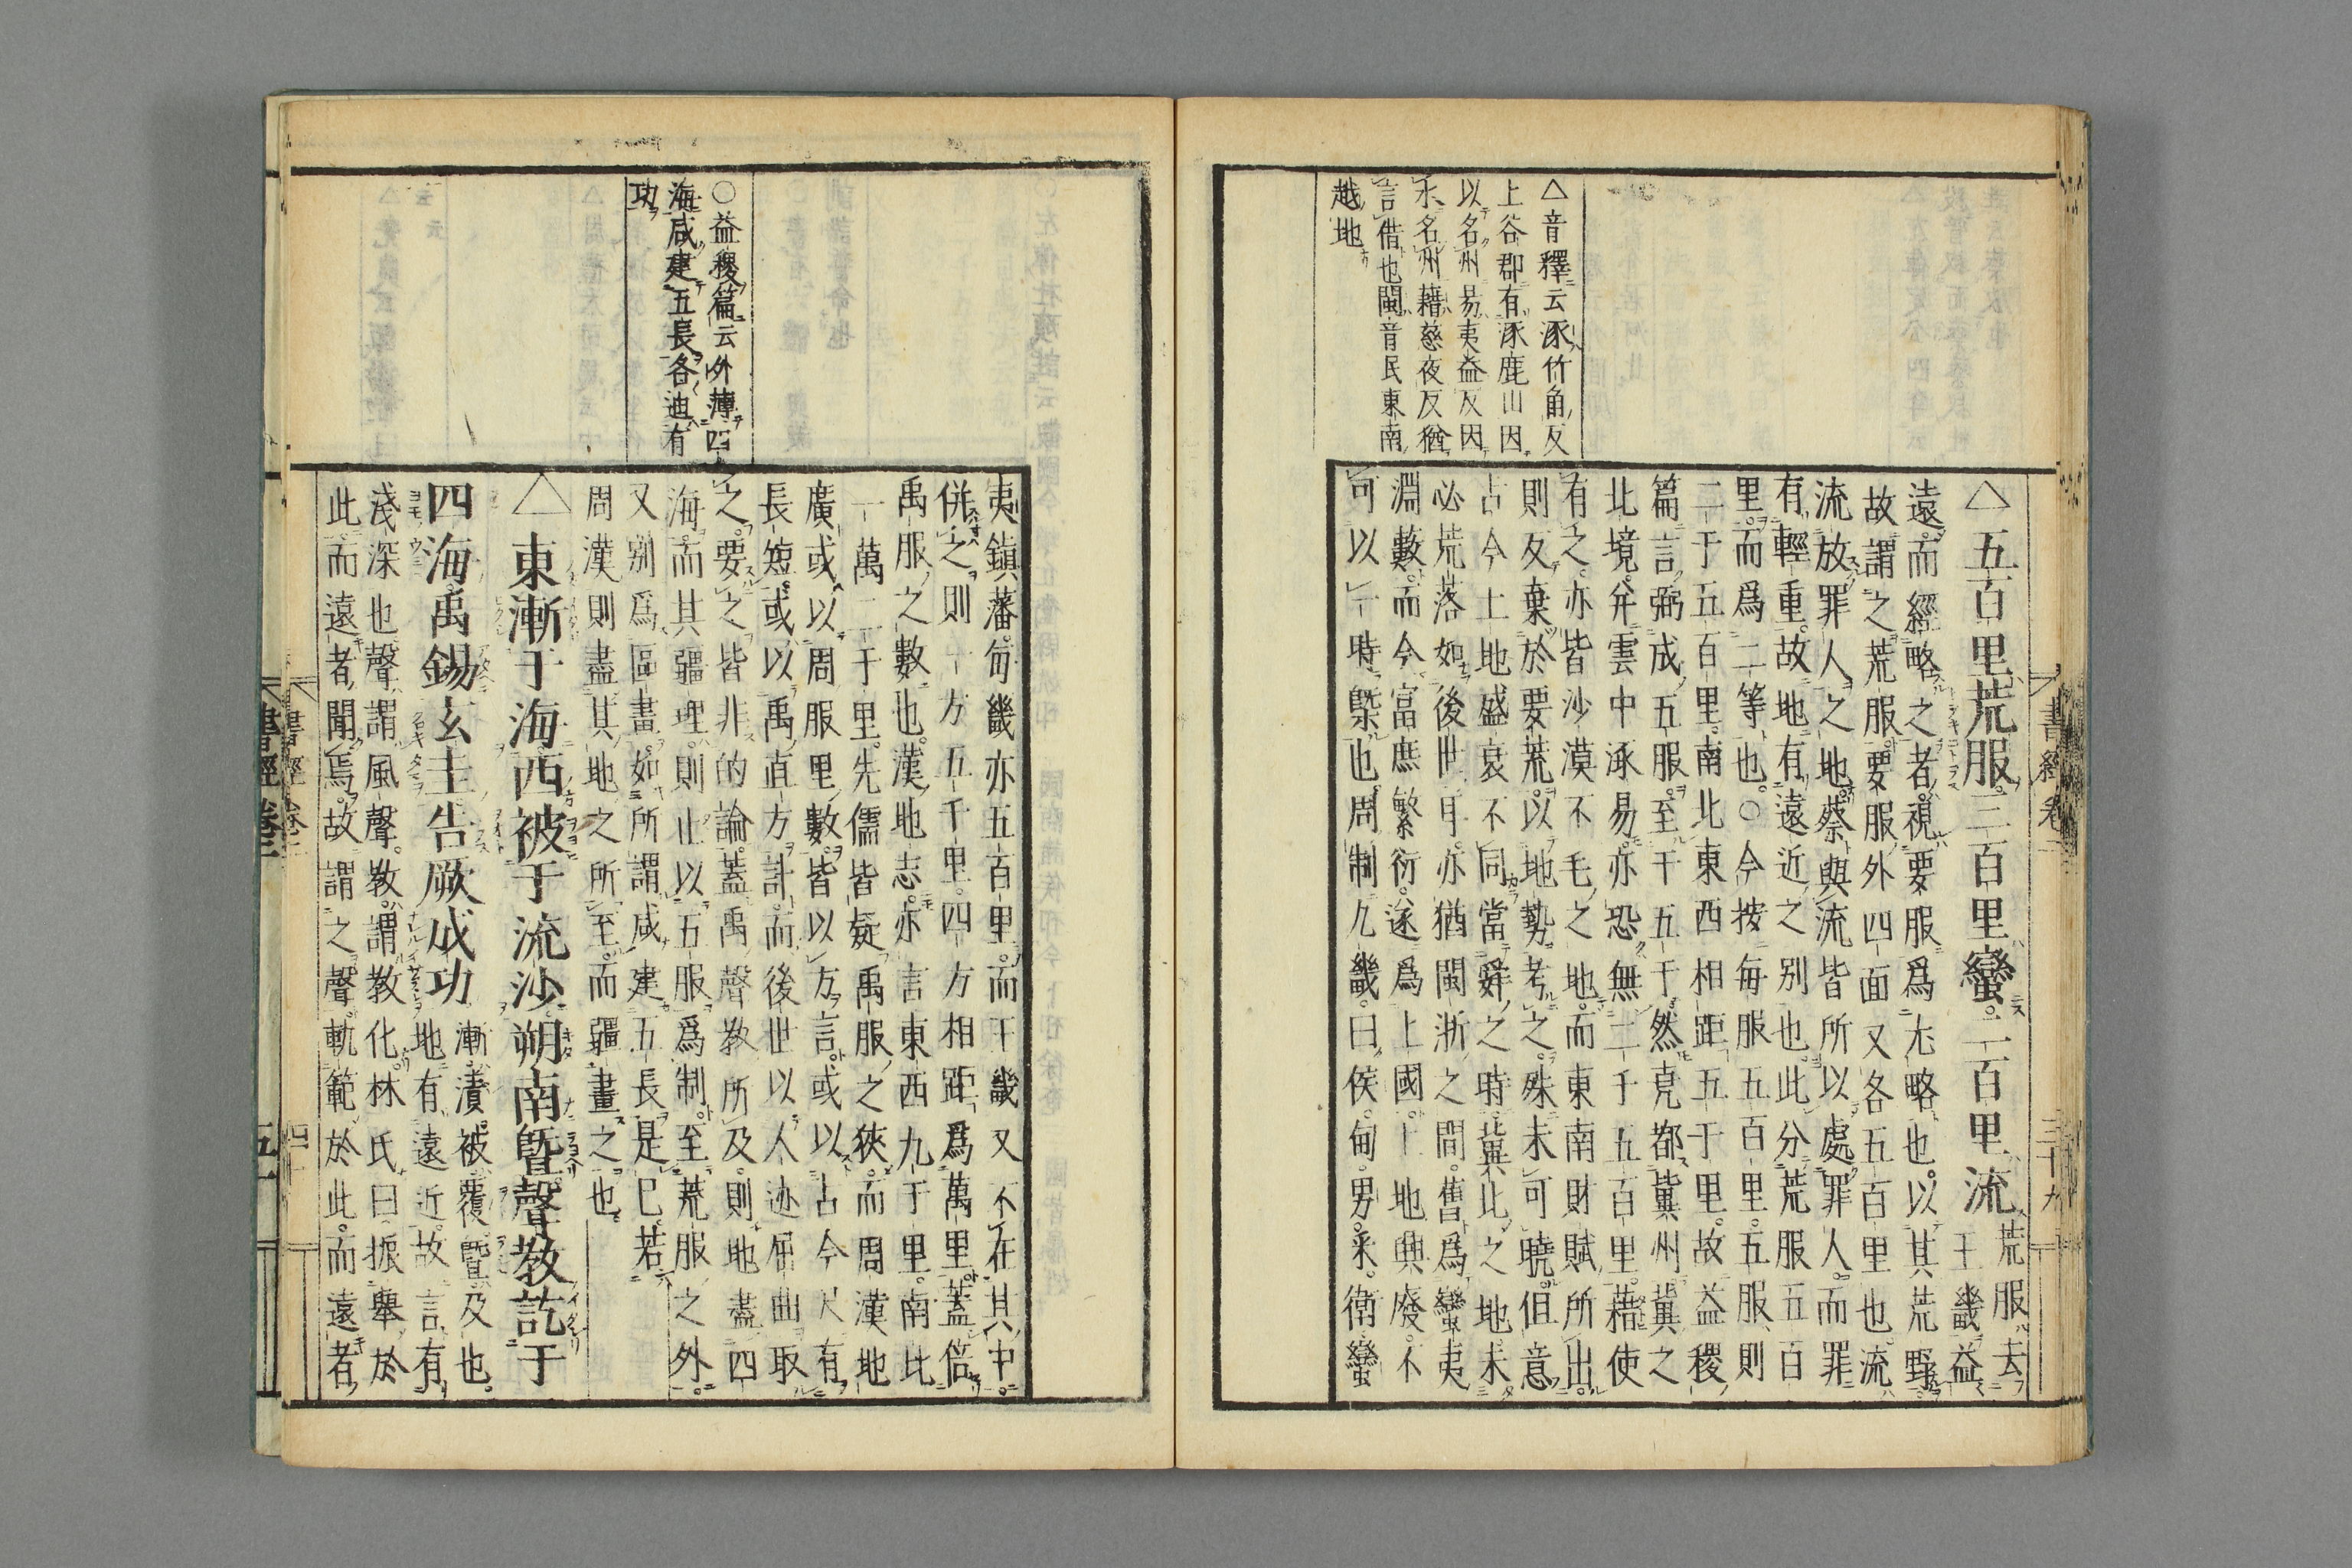 △音釋云涿竹角反
上谷郡有涿鹿山因
以名州易夷益反因
水名州藉慈夜反猶
言借也閩音民東南
越地
△五百里荒服三百里蠻二百里流荒服去
王畿益
遠而經略之者視要服爲尢略也以其荒野
故謂之荒服要服外四面又各五百里也流
流放罪人之地蔡與流皆所以處罪人而罪
有輕重故地有遠近之别也此分荒服五百
里而爲二等也○今按每服五百里五服則
二千五百里南北東西相距五千里故益稷
篇言弼成五服至于五千然堯都冀州冀之
北境并雲中涿易亦恐無二千五百里藉使
有之亦皆沙漠不毛之地而東南財賦所出
則反棄於要荒以地勢考之殊未可曉但意
古今土地盛衰不同當舜之時冀北之地未
必荒落如後世耳亦猶閩浙之間舊爲蠻夷
淵藪而今富庶繁衍遂爲上國土地興廢不
可以一時槩也周制九畿曰侯甸男采衛蠻
書經卷二
三十九
○益稷篇云外薄四
海咸建五長各迪有
功
夷鎮藩每畿亦五百里而王畿又不在其中
併之則一方五千里四方相距爲萬里蓋倍
禹服之數也漢地志亦言東西九千里南北
一萬二千里先儒皆疑禹服之狹而周漢地
廣或以周服里數皆以方言或以古今尺有
長短或以禹直方計而後世以人迹屈曲取
之要之皆非的論蓋禹聲教所及則地盡四
海而其疆理則止以五服爲制至荒服之外
又别爲區畫如所謂咸建五長是已若
周漢則盡其地之所至而疆畫之也
△東漸于海西被于流沙朔南曁聲敎訖于
四海禹錫玄圭告厥成功漸漬被覆曁及也
地有遠近故言有
淺深也聲謂風聲教謂教化林氏曰振舉於
此而遠者聞焉故謂之聲軌範於此而遠者
書經卷二
四十
書經卷二